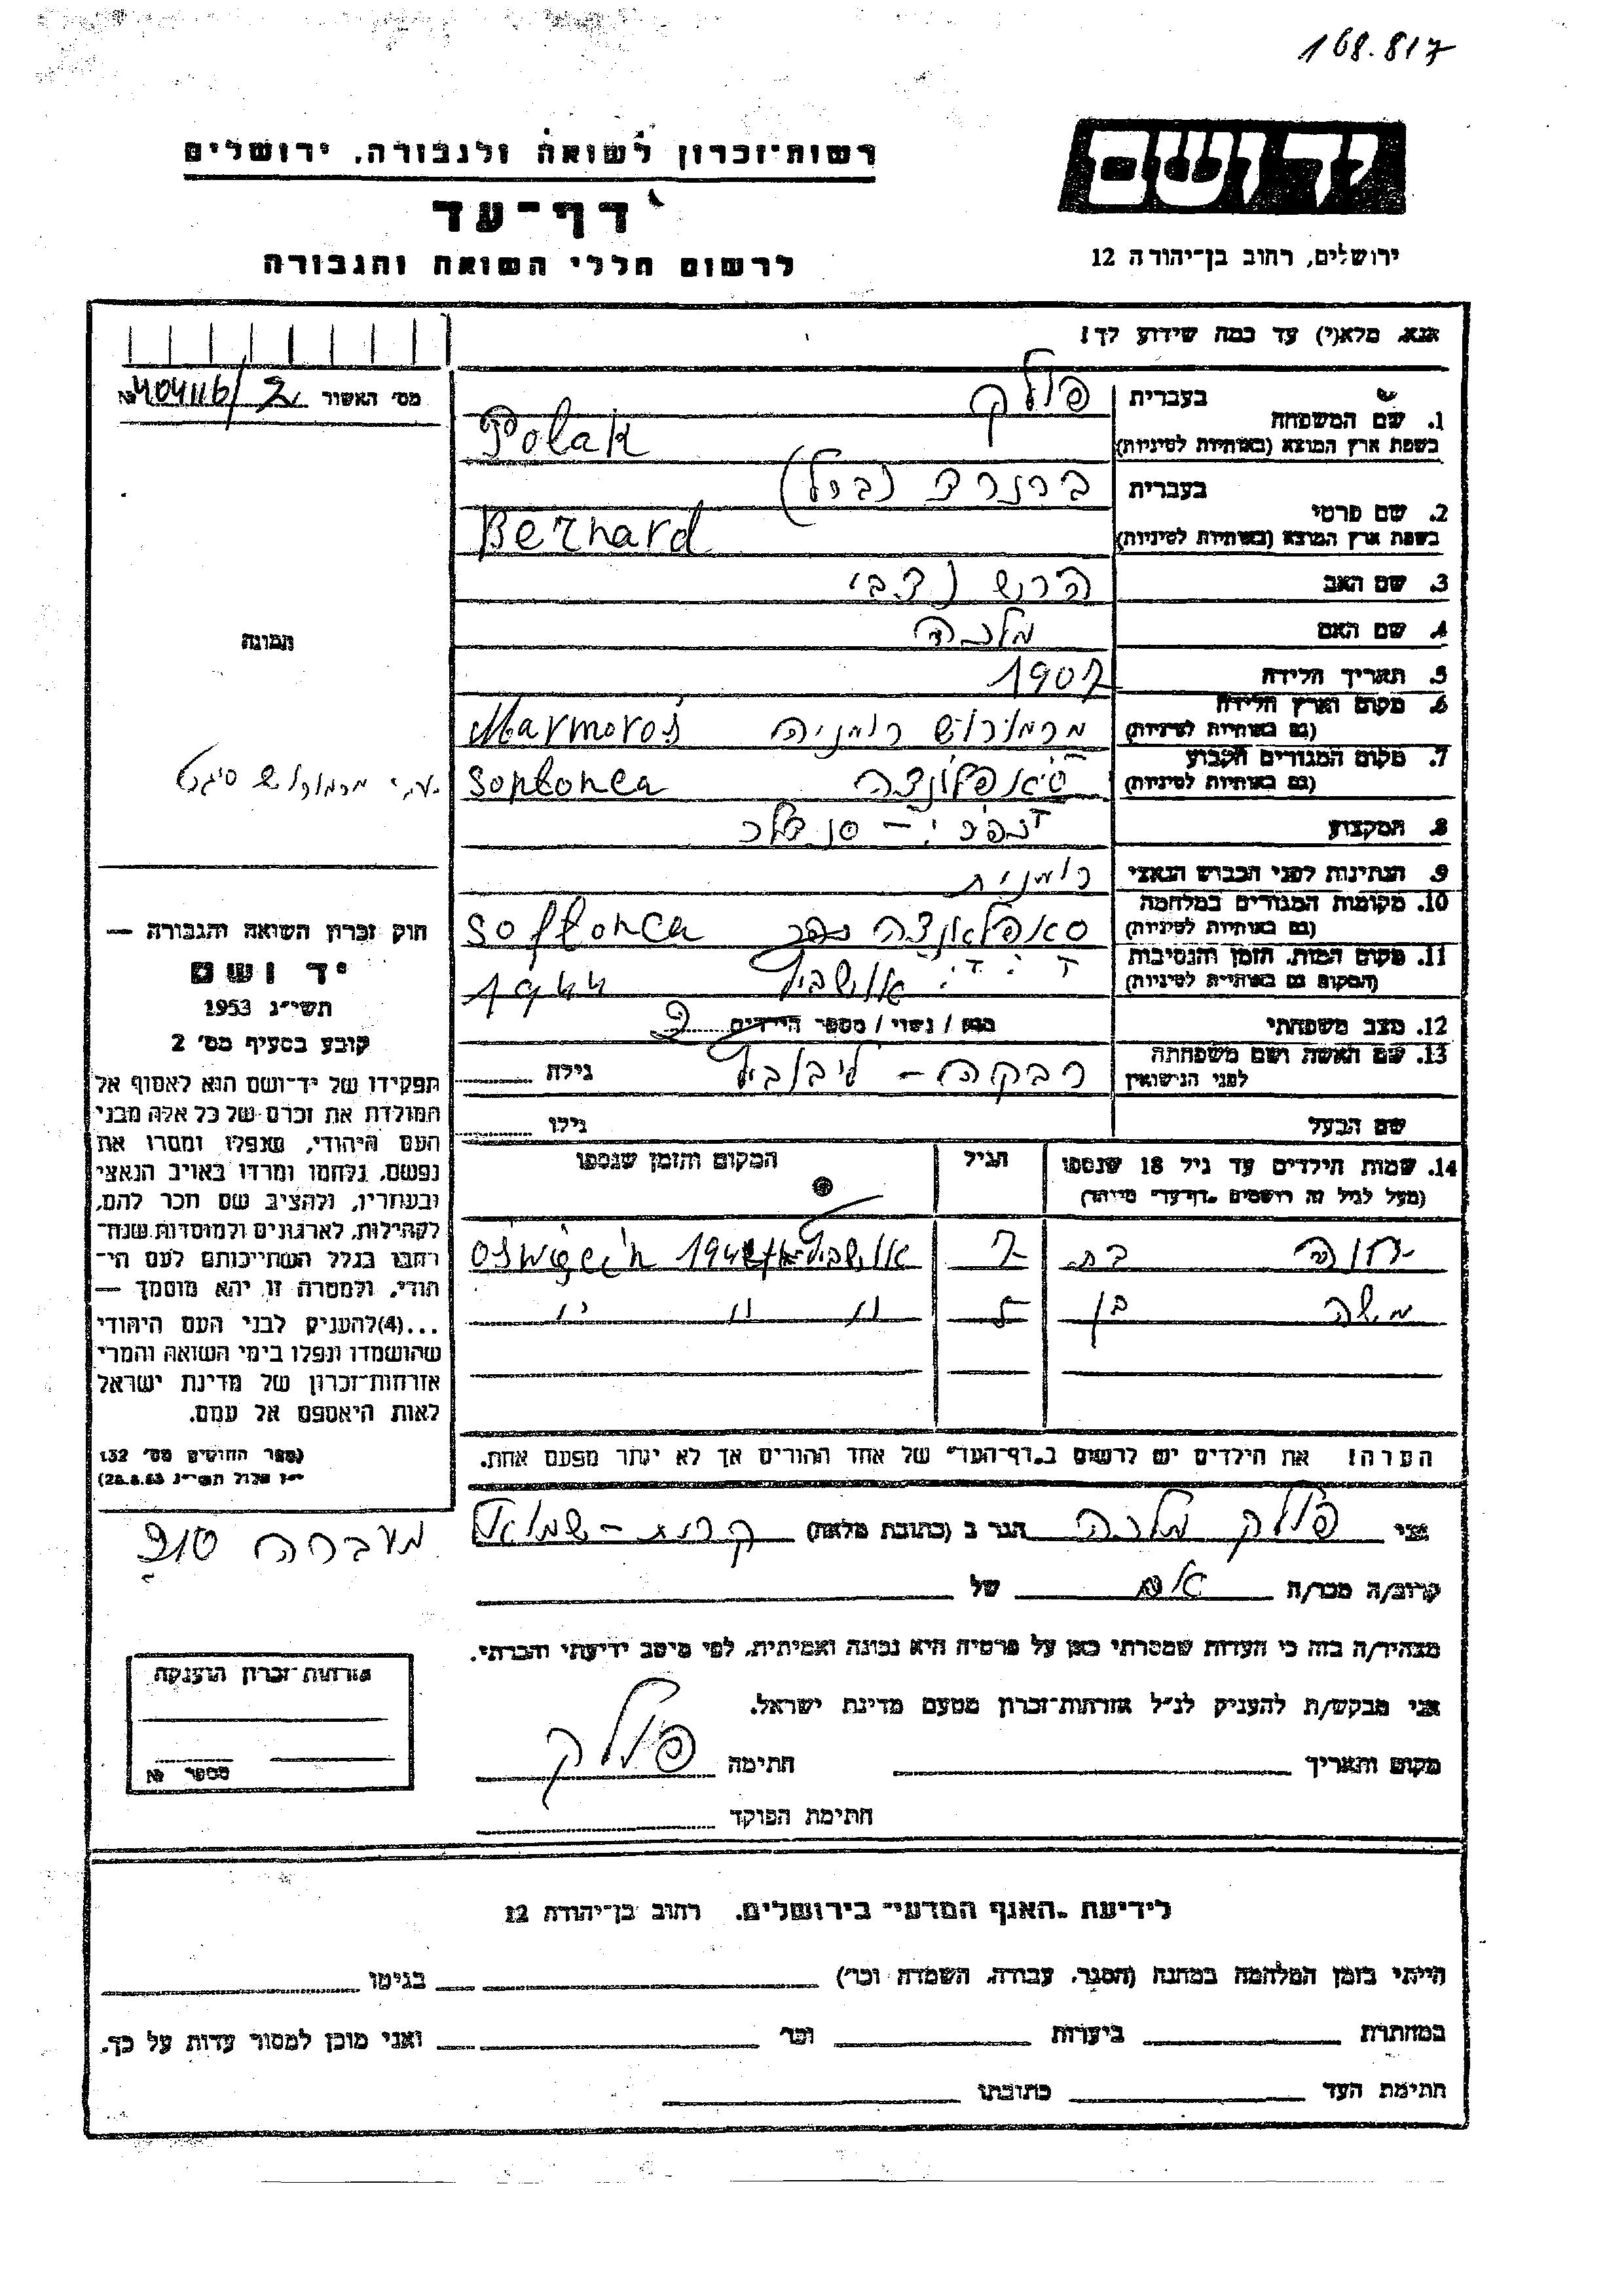 168.817
יד ושם
ירושלים, רחוב בן־יהודה 12
רשות־זכרון לשואה ולגבורה, ירושלים
דף־עד
לרשום חללי השואה והגבורה
אנא, מלא(י) עד כמה שידוע לך!
מס' האשור № 404116/2
1. שם המשפחה
בעברית פולק
בשפת ארץ המוצא (באותיות לטיניות) Polak
2. שם פרטי
בעברית ברנרד (ברל)
בשפת ארץ המוצא (באותיות לטיניות) Bernard
3. שם האב הרש (צבי
4. שם האם מלכה
5. תאריך הלידה 1907
6. מקום וארץ הלידה
(גם באותיות לטיניות) מרמורוש רומניה Marmoros
7. מקום המגורים הקבוע
(גם באותיות לטיניות) סאפלונצה Soplonca
8. המקצוע סנדלר
9. הנתינות לפני הכבוש הנאצי רומנית
10. מקומות המגורים במלחמה
(גם באותיות לטיניות) סאפלאנצה Soflonca
11. מקום המות, הזמן והנסיבות
(המקום גם באותיות לטיניות) אושביץ 1944
12. מצב משפחתי רווק / נשוי / מספר הילדים 2
13. שם האשה ושם משפחתה
לפני הנישואין רבקה – ליבוביץ גילה
שם הבעל גילו
14. שמות הילדים עד גיל 18 שנספו
(מעל לגיל זה רושמים „דף־עד” מיוחד)
הגיל
המקום והזמן שנספו
חוה בת 7 אושביץ 1944 Oświęcim
משה בן 5 " " "
הערה! את הילדים יש לרשום ב„דף־העד” של אחד ההורים אך לא יותר מפעם אחת.
תמונה
מרמורש סיגט
חוק זכרון השואה והגבורה —
יד ושם
תשי״ג 1953
קובע בסעיף מס' 2
תפקידו של יד־ושם הוא לאסוף אל
המולדת את זכרם של כל אלה מבני
העם היהודי, שנפלו ומסרו את
נפשם, נלחמו ומרדו באויב הנאצי
ובעוזריו, ולהציב שם וזכר להם,
לקהילות, לארגונים ולמוסדות שנח־
רבו בגלל השתייכותם לעם הי־
הודי, ולמטרה זו יהא מוסמך —
...(4)להעניק לבני העם היהודי
שהושמדו ונפלו בימי השואה והמרי
אזרחות־זכרון של מדינת ישראל
לאות היאספם אל עמם.
(ספר החוקים מס' 132
י״ז אלול תשי״ג 28.8.53)
אני פולק מלכה הגר ב (כתובת מלאה) קרית-שמואל
מעברה
קרוב/ה מכר/ה אם של
מצהיר/ה בזה כי העדות שמסרתי כאן על פרטיה היא נכונה ואמיתית, לפי מיטב ידיעתי והכרתי.
אני מבקש/ת להעניק לנ״ל אזרחות־זכרון מטעם מדינת ישראל.
מקום ותאריך חתימה פולק
חתימת הפוקד
אזרחות־זכרון הוענקה
מספר №
לידיעת „האגף המדעי” בירושלים, רחוב בן־יהודה 12
הייתי בזמן המלחמה במחנה (הסגר, עבודה, השמדה וכו') בגיטו
במחתרת ביערות וכו' ואני מוכן למסור עדות על כך.
חתימת העד כתובתו